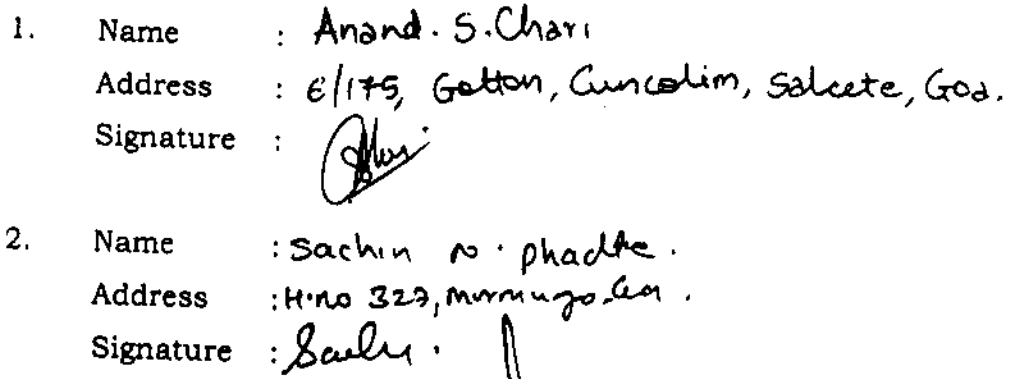 1. Name : Anand. S. Chari
Address : E/175, Gotton, Cuncolim, Salcete, Goa.
Signature :
2. Name : Sachin N. Phadke.
Address : H.no 327, Mormugo, Goa.
Signature : Sachi.